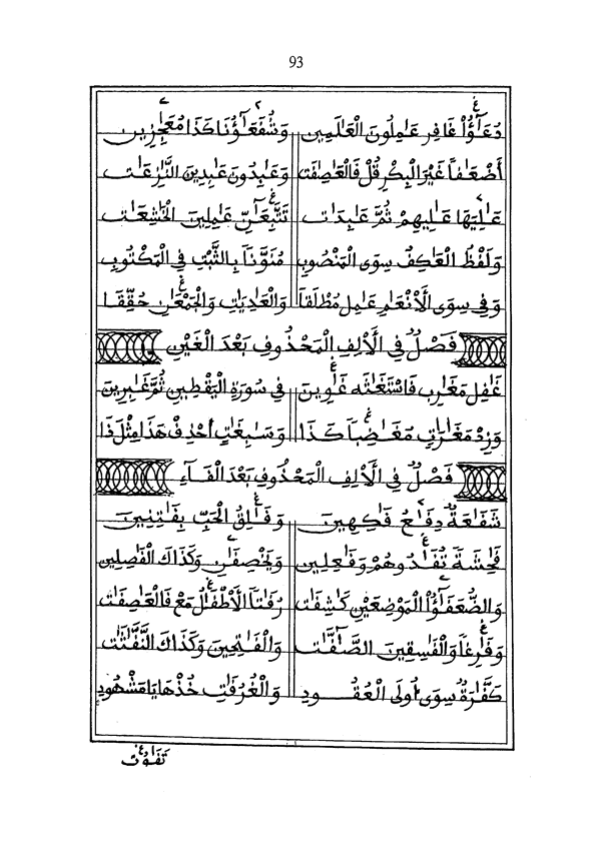 93
دُعَٰٓؤُاْ غَافِرِ عَٰمِلُونَ الْعَٰلَمِينَ وَشُفَعَٰٓؤُنَا كَذَا مُعَٰجِزِينَ
أَضْعَٰفاً غَيْرَ الْبِكْرِ قُلْ فَالْعَٰصِفَٰتِ وَعَٰبِدُونَ عَٰبِدِينَ النَّٰزِعَٰتِ
عَٰلِيَهَا عَٰلِيهِمْ ثُمَّ عَٰبِدَاتٍ تَتَّبِعَآنِّ عَٰمِلِينَ الْخَٰشِعَٰتِ
وَلَفْظُ الْعَٰكِفُ سِوَى الْمَنْصُوبِ مُنَوَّناً بِالثَّبْتِ فِي الْمَكْتُوبِ
وَفِي سِوَى الْأَنْعَٰمِ عَٰمِل مُطْلَقاً وَالْعَٰدِيَٰتِ وَالْجَمْعَٰنِ حُقِّقَا
فَصْلٌ فِي الْأَلِفِ الْمَحْذُوفِ بَعْدَ الْغَيْنِ
غَٰفِل مَغَٰرِب فَاسْتَغَٰثَه غَٰوِينَ فِي سُورَةِ الْيَقْطِينِ ثُمَّ غَٰبِرِينَ
وَزِدْ مَغَٰرَٰتٍ مُغَٰضِباً كَذَا وَسَٰبِغَٰتٍ احْذِفْ هَذَا مِثْلَ ذَا
فَصْلٌ فِي الْأَلِفِ الْمَحْذُوفِ بَعْدَ الْفَاءِ
شَفَٰعَةٌ دِفَٰعُ فَٰكِهِينَ وَفَٰلِقُ الْحَبِّ بِفَٰتِنِينَ
فَٰحِشَةَ تُفَٰدُوهُمْ وَفَٰعِلِينَ وَيَخْصِفَٰنِ وَكَذَاكَ الْفَٰصِلِينَ
وَالضُّعَفَٰٓؤُاْ الْمَوْضِعَيْنِ كَٰشِفَٰتُ رُفَٰتاً الْأَطْفَٰلُ مَعْ فَالْعَٰصِفَٰتِ
وَفَٰرِغاً وَالْفَٰسِقِينَ الصَّٰٓفَّٰتِ وَالْفَٰتِحِينَ وَكَذَاكَ النَّفَّٰثَٰتِ
كَفَّٰرَةٌ سِوَى أُولَى الْعُقُودِ وَالْغُرُفَٰتِ خُذْهَا يَا مَشْهُودِ
تَفَٰوُتٍ